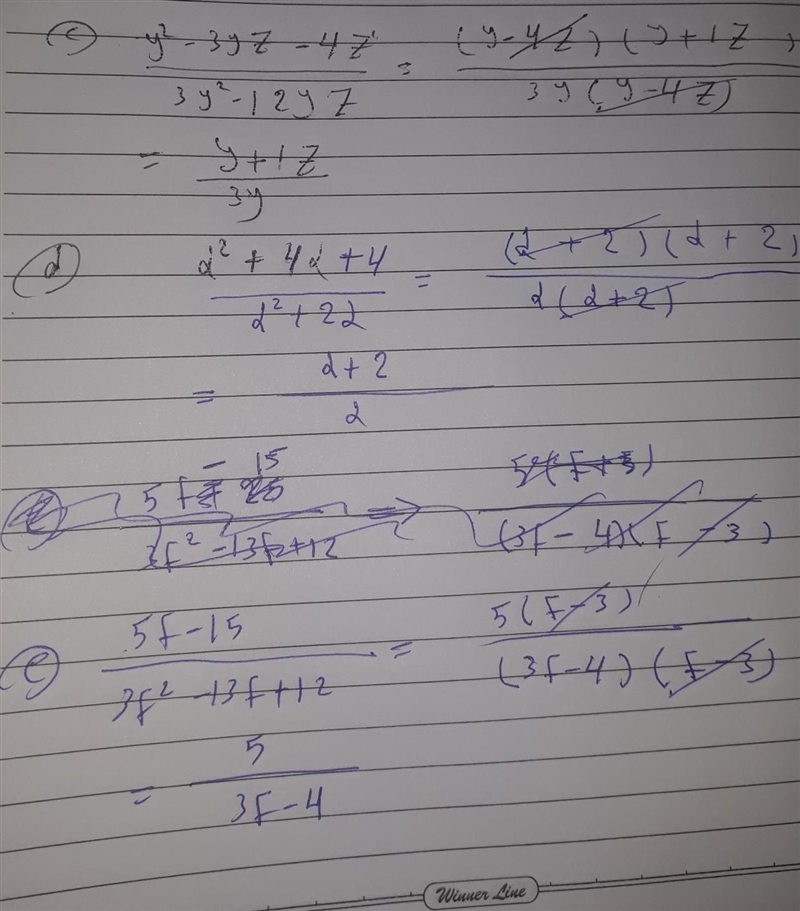 c) (y² - 3yz - 4z²) / (3y² - 12yz) = (y - 4z)(y + 1z) / 3y(y - 4z)
= (y + 1z) / 3y
d) (d² + 4d + 4) / (d² + 2d) = (d + 2)(d + 2) / d(d + 2)
= (d + 2) / d
5f - 15 / (3f² - 13f + 12) => 5(f + 5) / (3f - 4)(f - 3)
e) (5f - 15) / (3f² - 13f + 12) = 5(f - 3) / (3f - 4)(f - 3)
= 5 / (3f - 4)
Winner Line